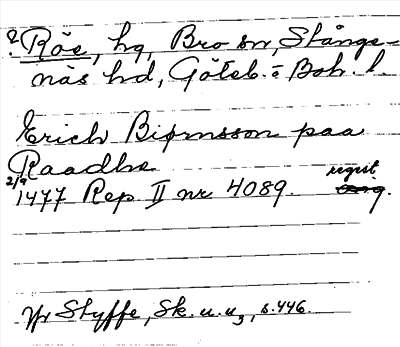 ? Röe, hg, Bro sn, Stånge-
näs hd, Göteb. o Boh. l.
Erich Biørnsson paa
Raadhe
2/9 1477 Rep. II nr 4089. regist.
Jfr Styffe, Sk. u. u3, s. 446.